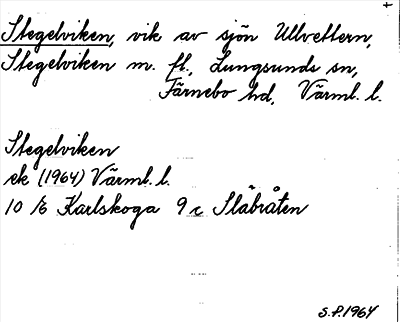 Stegelviken, vik av sjön Ullvettern,
Stegelviken m. fl., Lungsunds sn,
Färnebo hd, Värml. l.
Stegelviken
ek (1964) Värml. l.
10 E Karlskoga 9 c Slåbråten
S.P. 1964